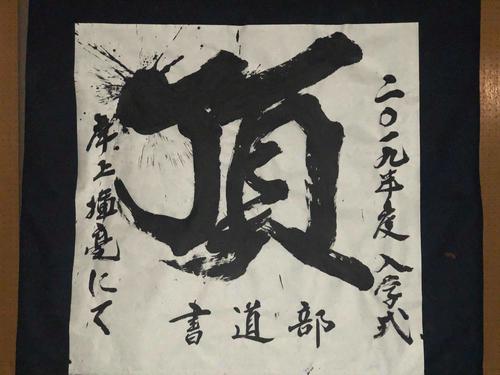 二〇一九年度 入学式
頂
席上揮毫にて
書道部